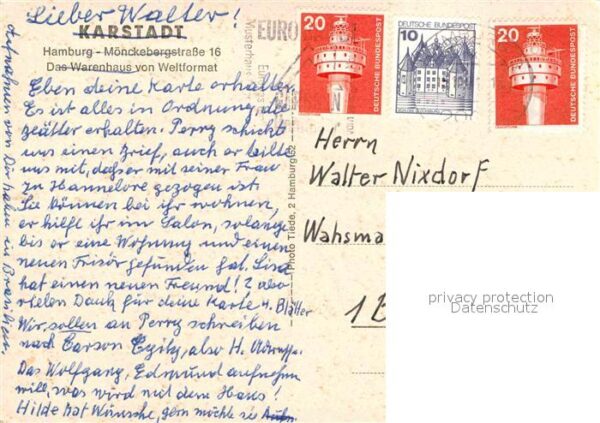 Lieber Walter!
KARSTADT
Hamburg - Mönckebergstraße 16
Das Warenhaus von Weltformat
Eben deine Karte erhalten
Es ist alles in Ordnung, die
erhalten. Perry schickt
uns einen Brief, auch er teilte
uns mit, dass er mit seiner Frau
zu Hannelore gezogen ist.
Sie können bei ihr wohnen,
er hilft ihr im Salon, solange
bis er eine Wohnung und einen
neuen Frisör gefunden hat. Lisa
hat einen neuen Freund!
vielen Dank für deine Karte u. Blätter
Wir sollen an Perry schreiben
nach Carson City, also H.
Das Wolfgang, Edmund aufnehmen
will, was wird mit dem Haus!
Hilde hat Wünsche, gern möchte sie
Aufnahmen von Dir haben in Brasilien.
Photo Tiede, 2 Hamburg 62
EURO
20
DEUTSCHE BUNDESPOST
DEUTSCHE BUNDESPOST
10
20
DEUTSCHE BUNDESPOST
Herrn
Walter Nixdorf
Wahsma
1
privacy protection
Datenschutz